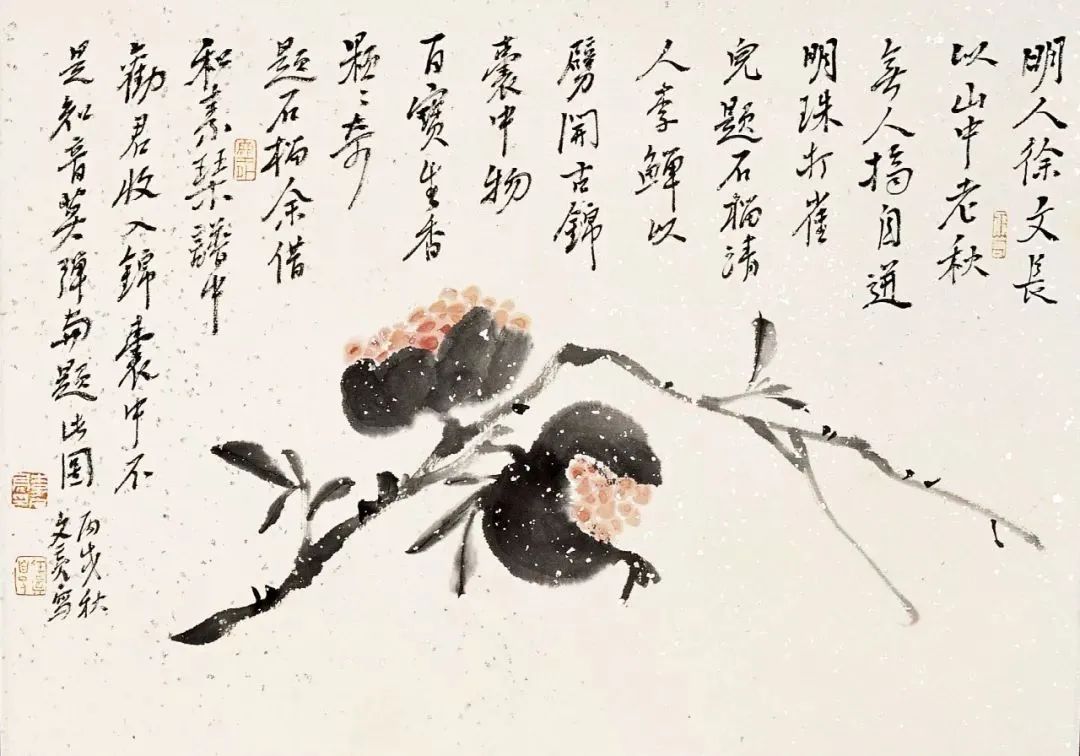 明人徐文長
以山中老秋
無人摘自迸
明珠打雀
兒題石榴清
人李鱓以
劈開古錦
囊中物
百寶生香
顆々奇
題石榴余借
和素琴譜中
勸君收入錦囊中不
是知音莫彈
題此圖
丙戌秋
文
寫